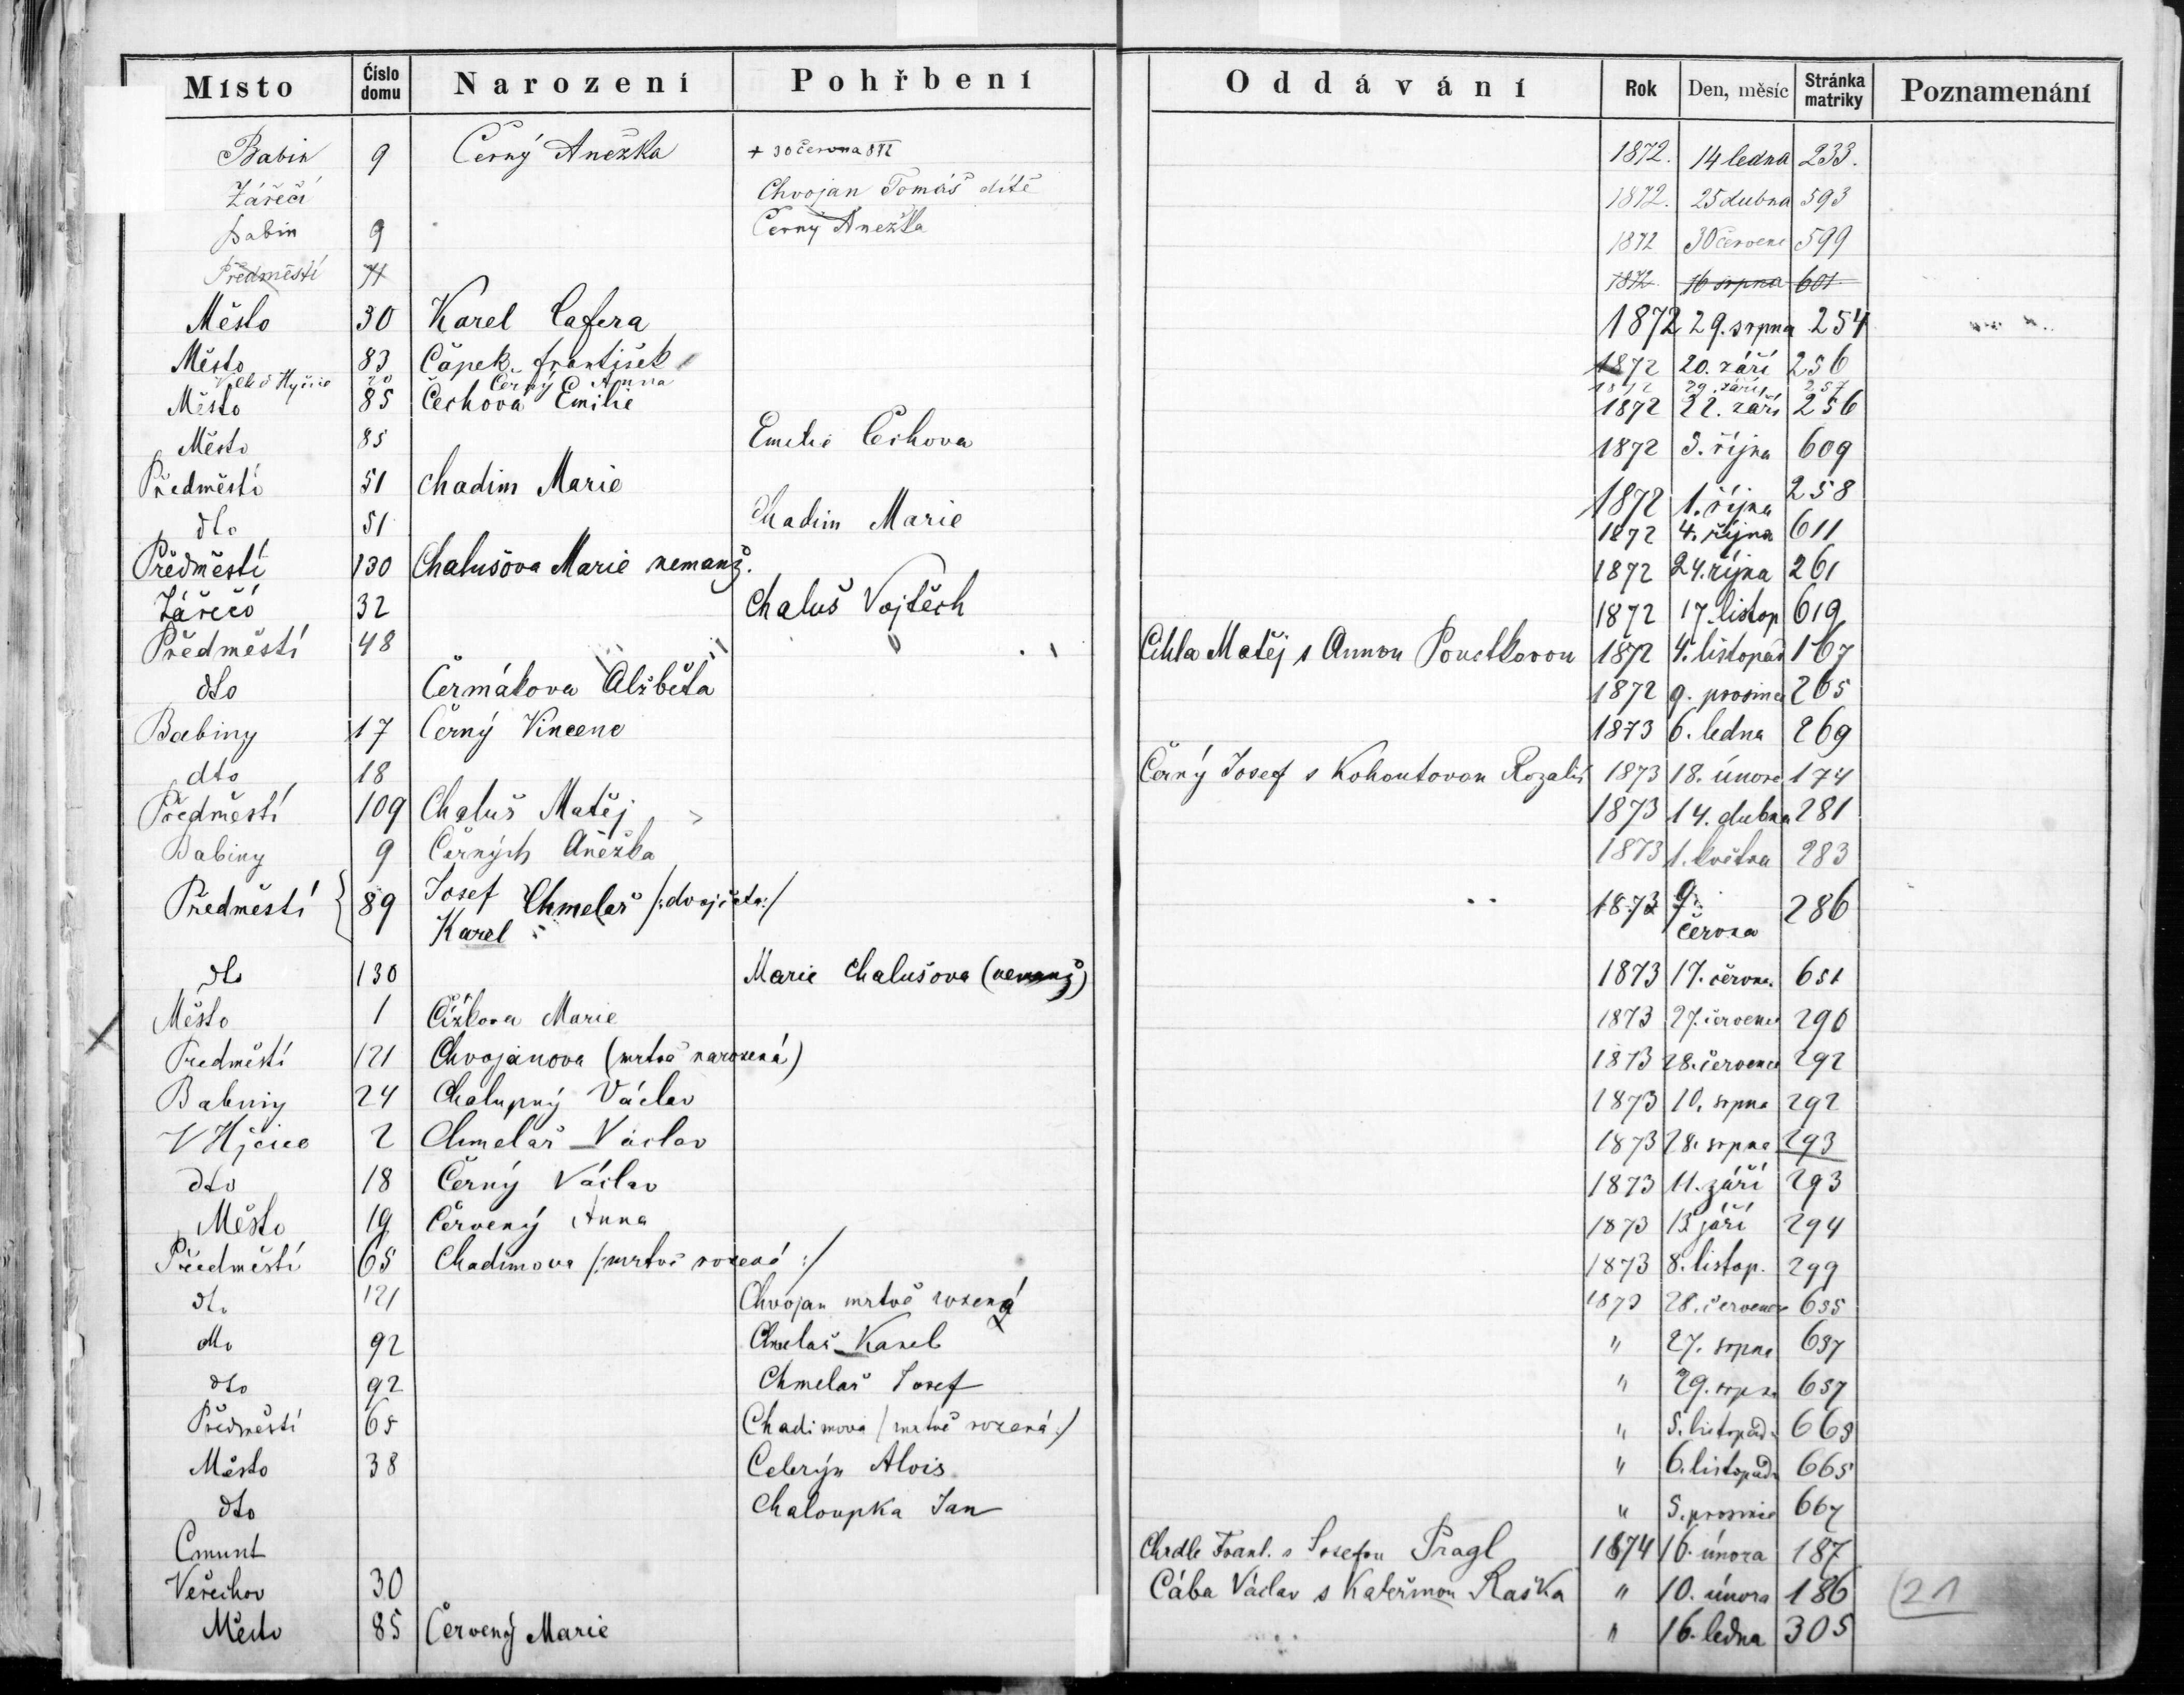 Místo Číslo domu Narození Pohřbení Oddávání Rok Den, měsíc Stránka matriky Poznamenání
Babin 9 Černý Anežka + 30 června 872 1872. 14 ledna 233.
Zářečí Chvojan Tomáš dítě 1872. 25 dubna 593
Babin 9 Černý Anežka 1872 30 června 599
Předměstí 71 1872. 16 srpna 601
Město 30 Karel Cafera 1872 29. srpna 254
Město 83 Čápek František 1872 20. září 256
Velké Hyčice 20 Černý Anna 1872 29. září 257
Město 85 Čechová Emilie 1872 22. září 256
Město 85 Emilie Čechova 1872 3. října 609
Předměstí 51 Chadim Marie 1872 1. října 258
dto 51 Chadim Marie 1872 4. října 611
Předměstí 130 Chalušova Marie nemanž. 1872 24. října 261
Zářečí 32 Chaluš Vojtěch 1872 17. listop 619
Předměstí 48 Cihla Matěj s Annou 1872 4. listopad 167
dto Čermákova Alžběta 1872 9. prosince 265
Babiny 17 Černý Vincenc 1873 6. ledna 269
dto 18 Černý Josef s Kohoutovou Rozalií 1873 18. února 174
Předměstí 109 Chaluš Matěj 1873 14. dubna 281
Babiny 9 Černých Anežka 1873 1. května 283
Předměstí 89 Josef Chmelař /:dvojčata:/ 1873 9. června 286
Karel
dto 130 Marie Chalušova (nemanž) 1873 17. června 651
Město 1 Čížkova Marie 1873 27. července 290
Předměstí 121 Chvojanova (mrtvě narozená) 1873 28. července 292
Babiny 24 Chalupný Václav 1873 10. srpna 292
V Hyčice 2 Chmelař Václav 1873 28. srpna 293
dto 18 Černý Václav 1873 11. září 293
Město 19 Červený Anna 1873 13. září 294
Předměstí 65 Chadimova /:mrtvě rozená:/ 1873 8. listop. 299
dto 121 Chvojan mrtvě rozený 1873 28. července 655
dto 92 Chmelař Karel " 27. srpna 657
dto 92 Chmelař Josef " 29. srpna 657
Předměstí 65 Chadimová /mrtvě rozená:/ " 5. listopadu 665
Město 38 Celerýn Alois " 6. listopadu 665
dto Chaloupka Jan " 5. prosince 667
Cmunt Chrdle Frant. s Josefou Pragl 1874 16. února 187
Veřechov 30 Cába Václav s Kateřinou Raška " 10. února 186 21
Město 85 Červený Marie " 16. ledna 305